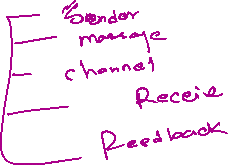 Sender
message
channel
Receie
Reedback